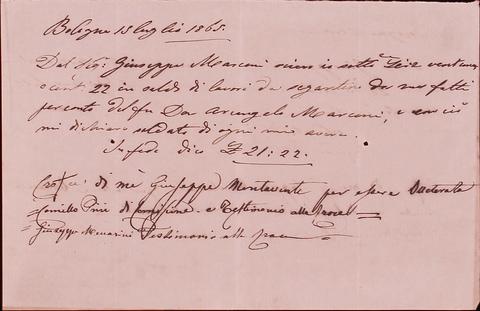 Bologna 15 luglio 1865.
Dal Sig: Giuseppe Marconi ricevo io sotto Lire ventuna
e cent: 22 in saldo di lavori da segantino da me fatti
per conto del fu Don Arcangelo Marconi, e con ciò
mi dichiaro saldato di ogni mio avere.
In fede dico £ 21:22.
Cro+ce di me Giuseppe per essere
Camillo di e Testimonio alla Croce
Giuseppe Testimonio alla Croce